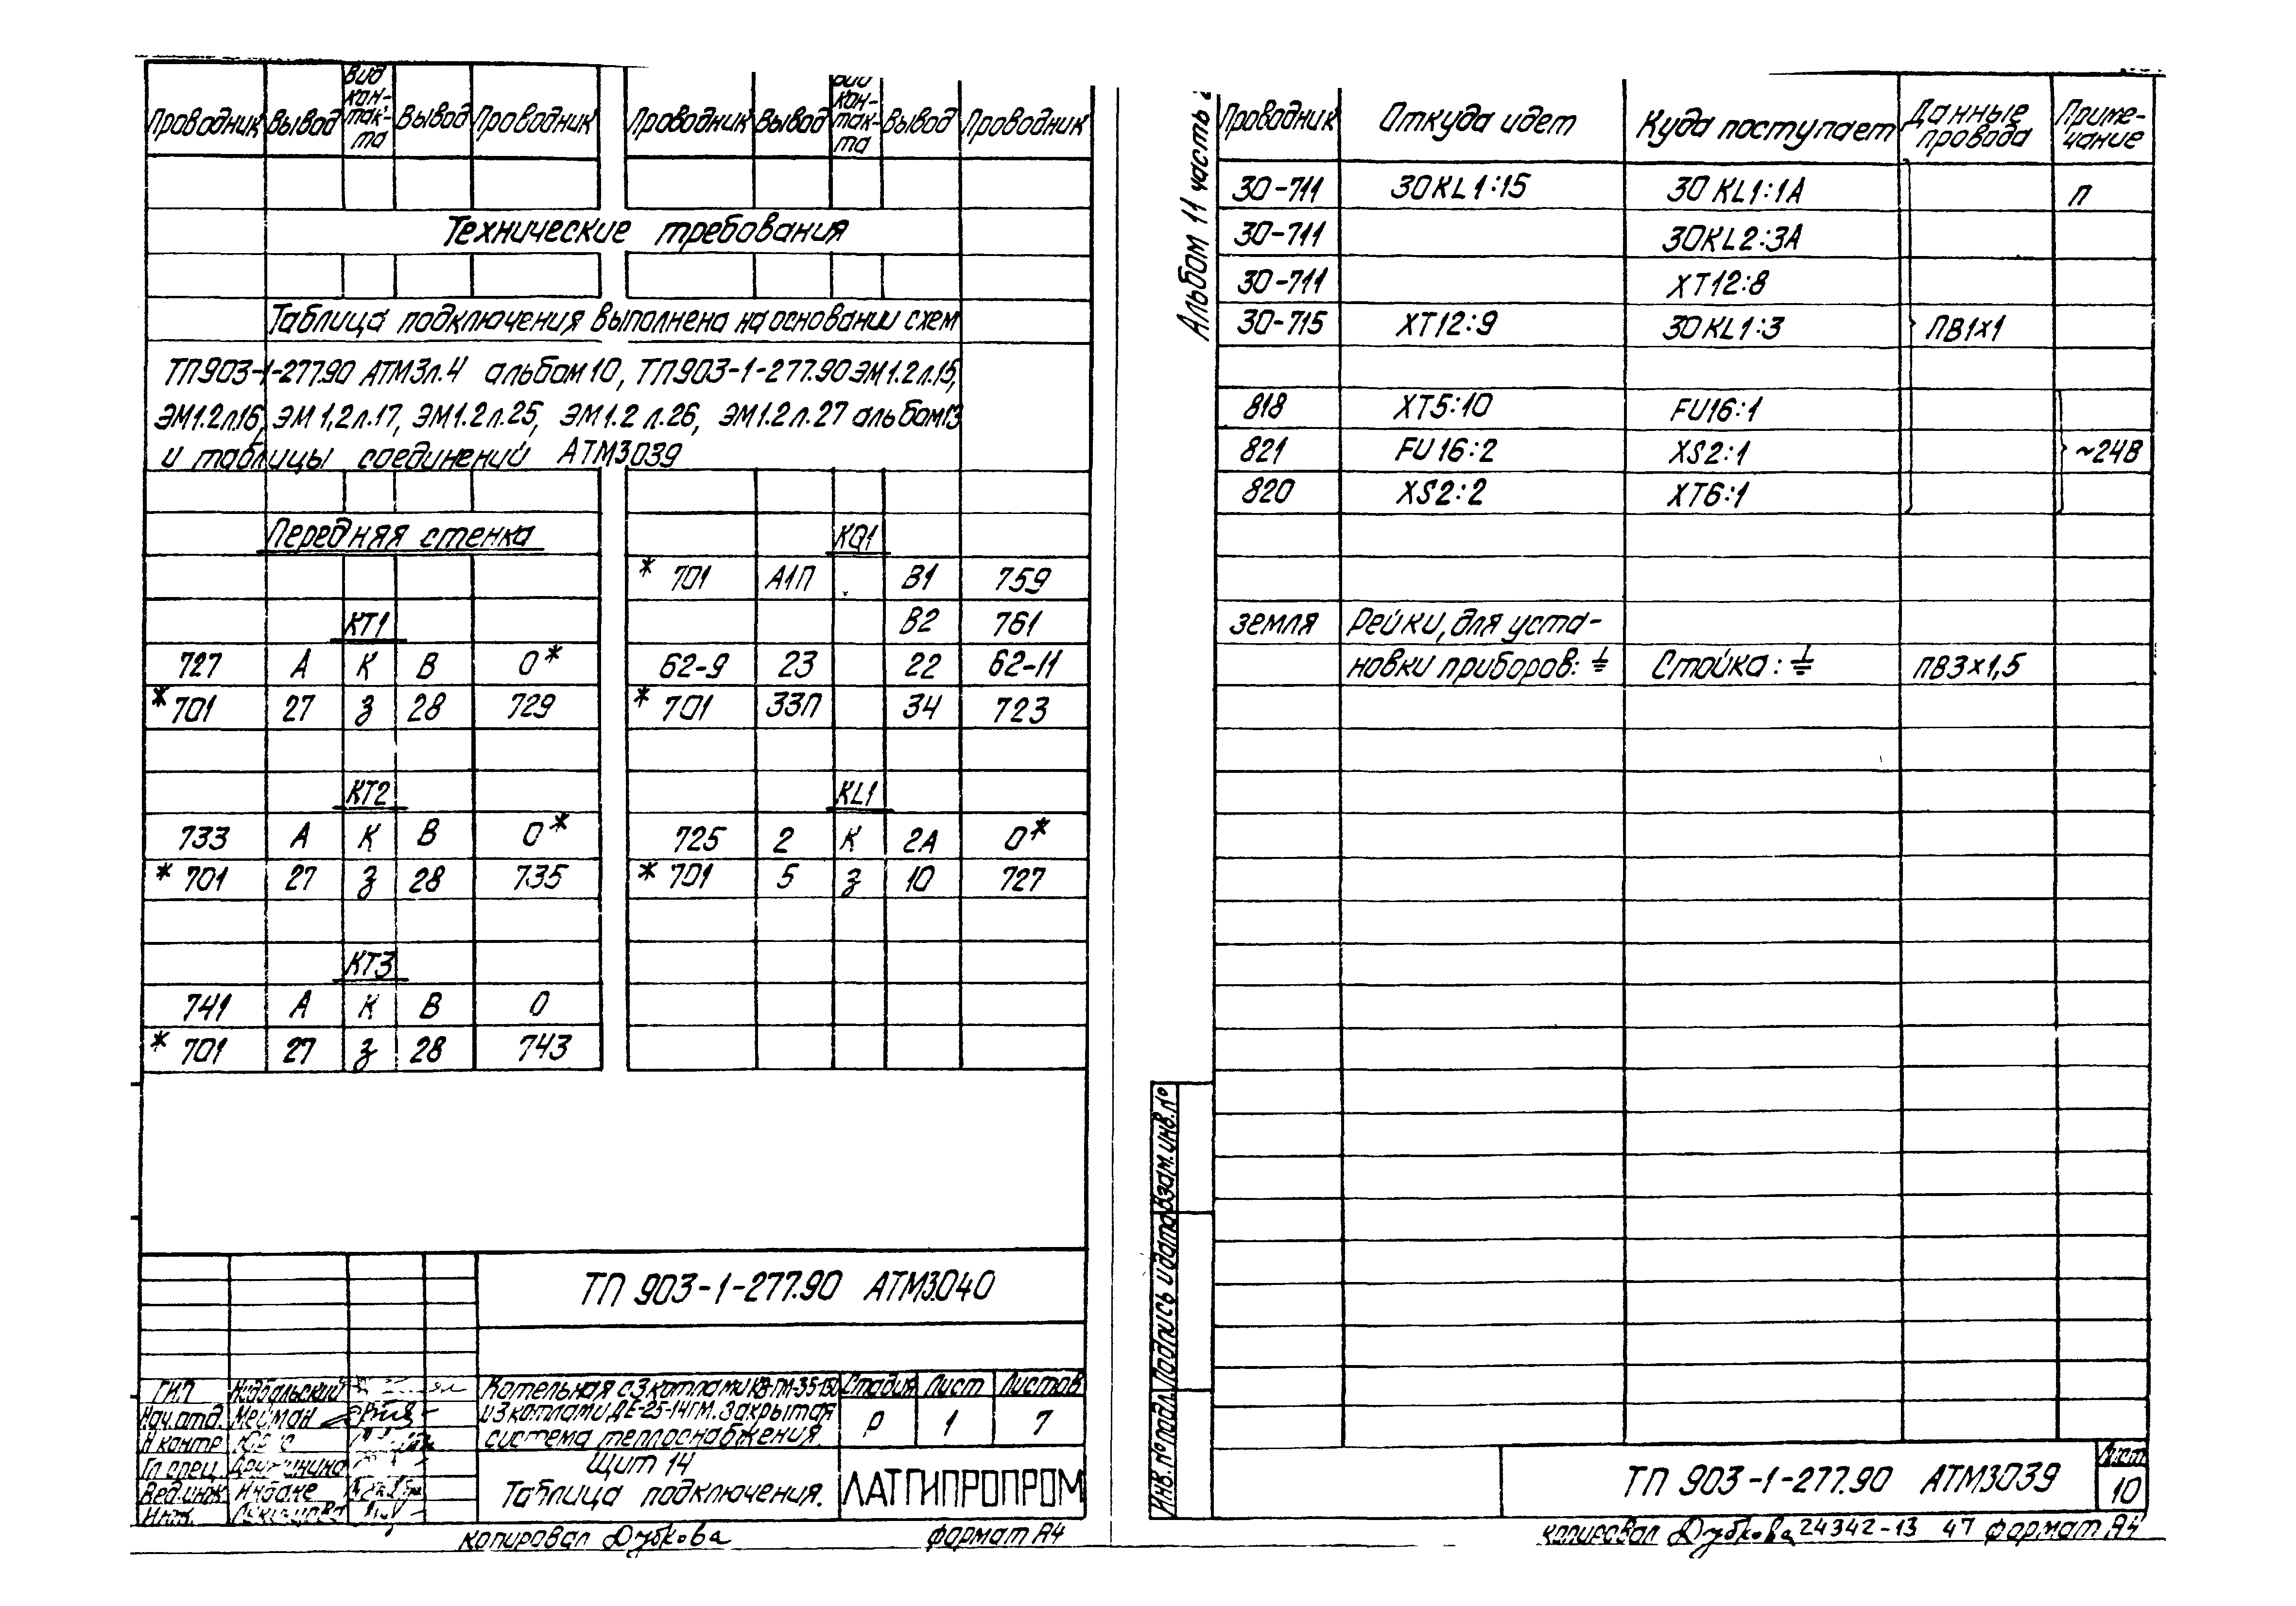 Проводник Вывод Вид кон-так-та Вывод Проводник Проводник Вывод Вид кон-так-та Вывод Проводник
Технические требования
Таблица подключения выполнена на основании схем
ТП903-1-277.90 АТМ3л.4 альбом 10, ТП903-1-277.90 ЭМ1.2л.15,
ЭМ1.2л16, ЭМ1,2л.17, ЭМ1.2л.25, ЭМ1.2 л.26, ЭМ1.2л.27 альбом13
и таблицы соединений АТМ3039
Передняя стенка
КТ1
727 А К В 0*
*701 27 З 28 729
КТ2
733 А К В 0*
*701 27 З 28 735
КТ3
741 А К В 0
*701 27 З 28 743
KQ1
*701 А1П В1 759
В2 761
62-9 23 22 62-11
*701 33П 34 723
KL1
725 2 К 2А 0*
*701 5 З 10 727
ТП 903-1-277.90 АТМ3.040
ГИП
Нач.отд. Нейман
Н контр
Гл спец
Вед.инж
Инж.
Котельная с 3 котлами КВ-ГМ-35-150
и 3 котлами ДЕ-25-14ГМ. Закрытая
система теплоснабжения.
Стадия Лист Листов
Р 1 7
Щит 14
Таблица подключения.
ЛАТГИПРОПРОМ
копировал Дубкова формат А4
Альбом 11 часть 2
Проводник Откуда идет Куда поступает Данные провода Приме-чание
30-711 30KL1:15 30KL1:1А П
30-711 30KL2:3А
30-711 ХТ12:8
30-715 ХТ12:9 30KL1:3 ПВ1х1
818 ХТ5:10 FU16:1
821 FU16:2 XS2:1 ~24В
820 XS2:2 ХТ6:1
земля Рейки, для уста-
новки приборов: ⏚ Стойка: ⏚ ПВ3х1,5
Инв.№ подл. Подпись и дата Взам.инв.№
ТП 903-1-277.90 АТМ3039
Лист
10
копировал Дубкова 24342-13 47 формат А4